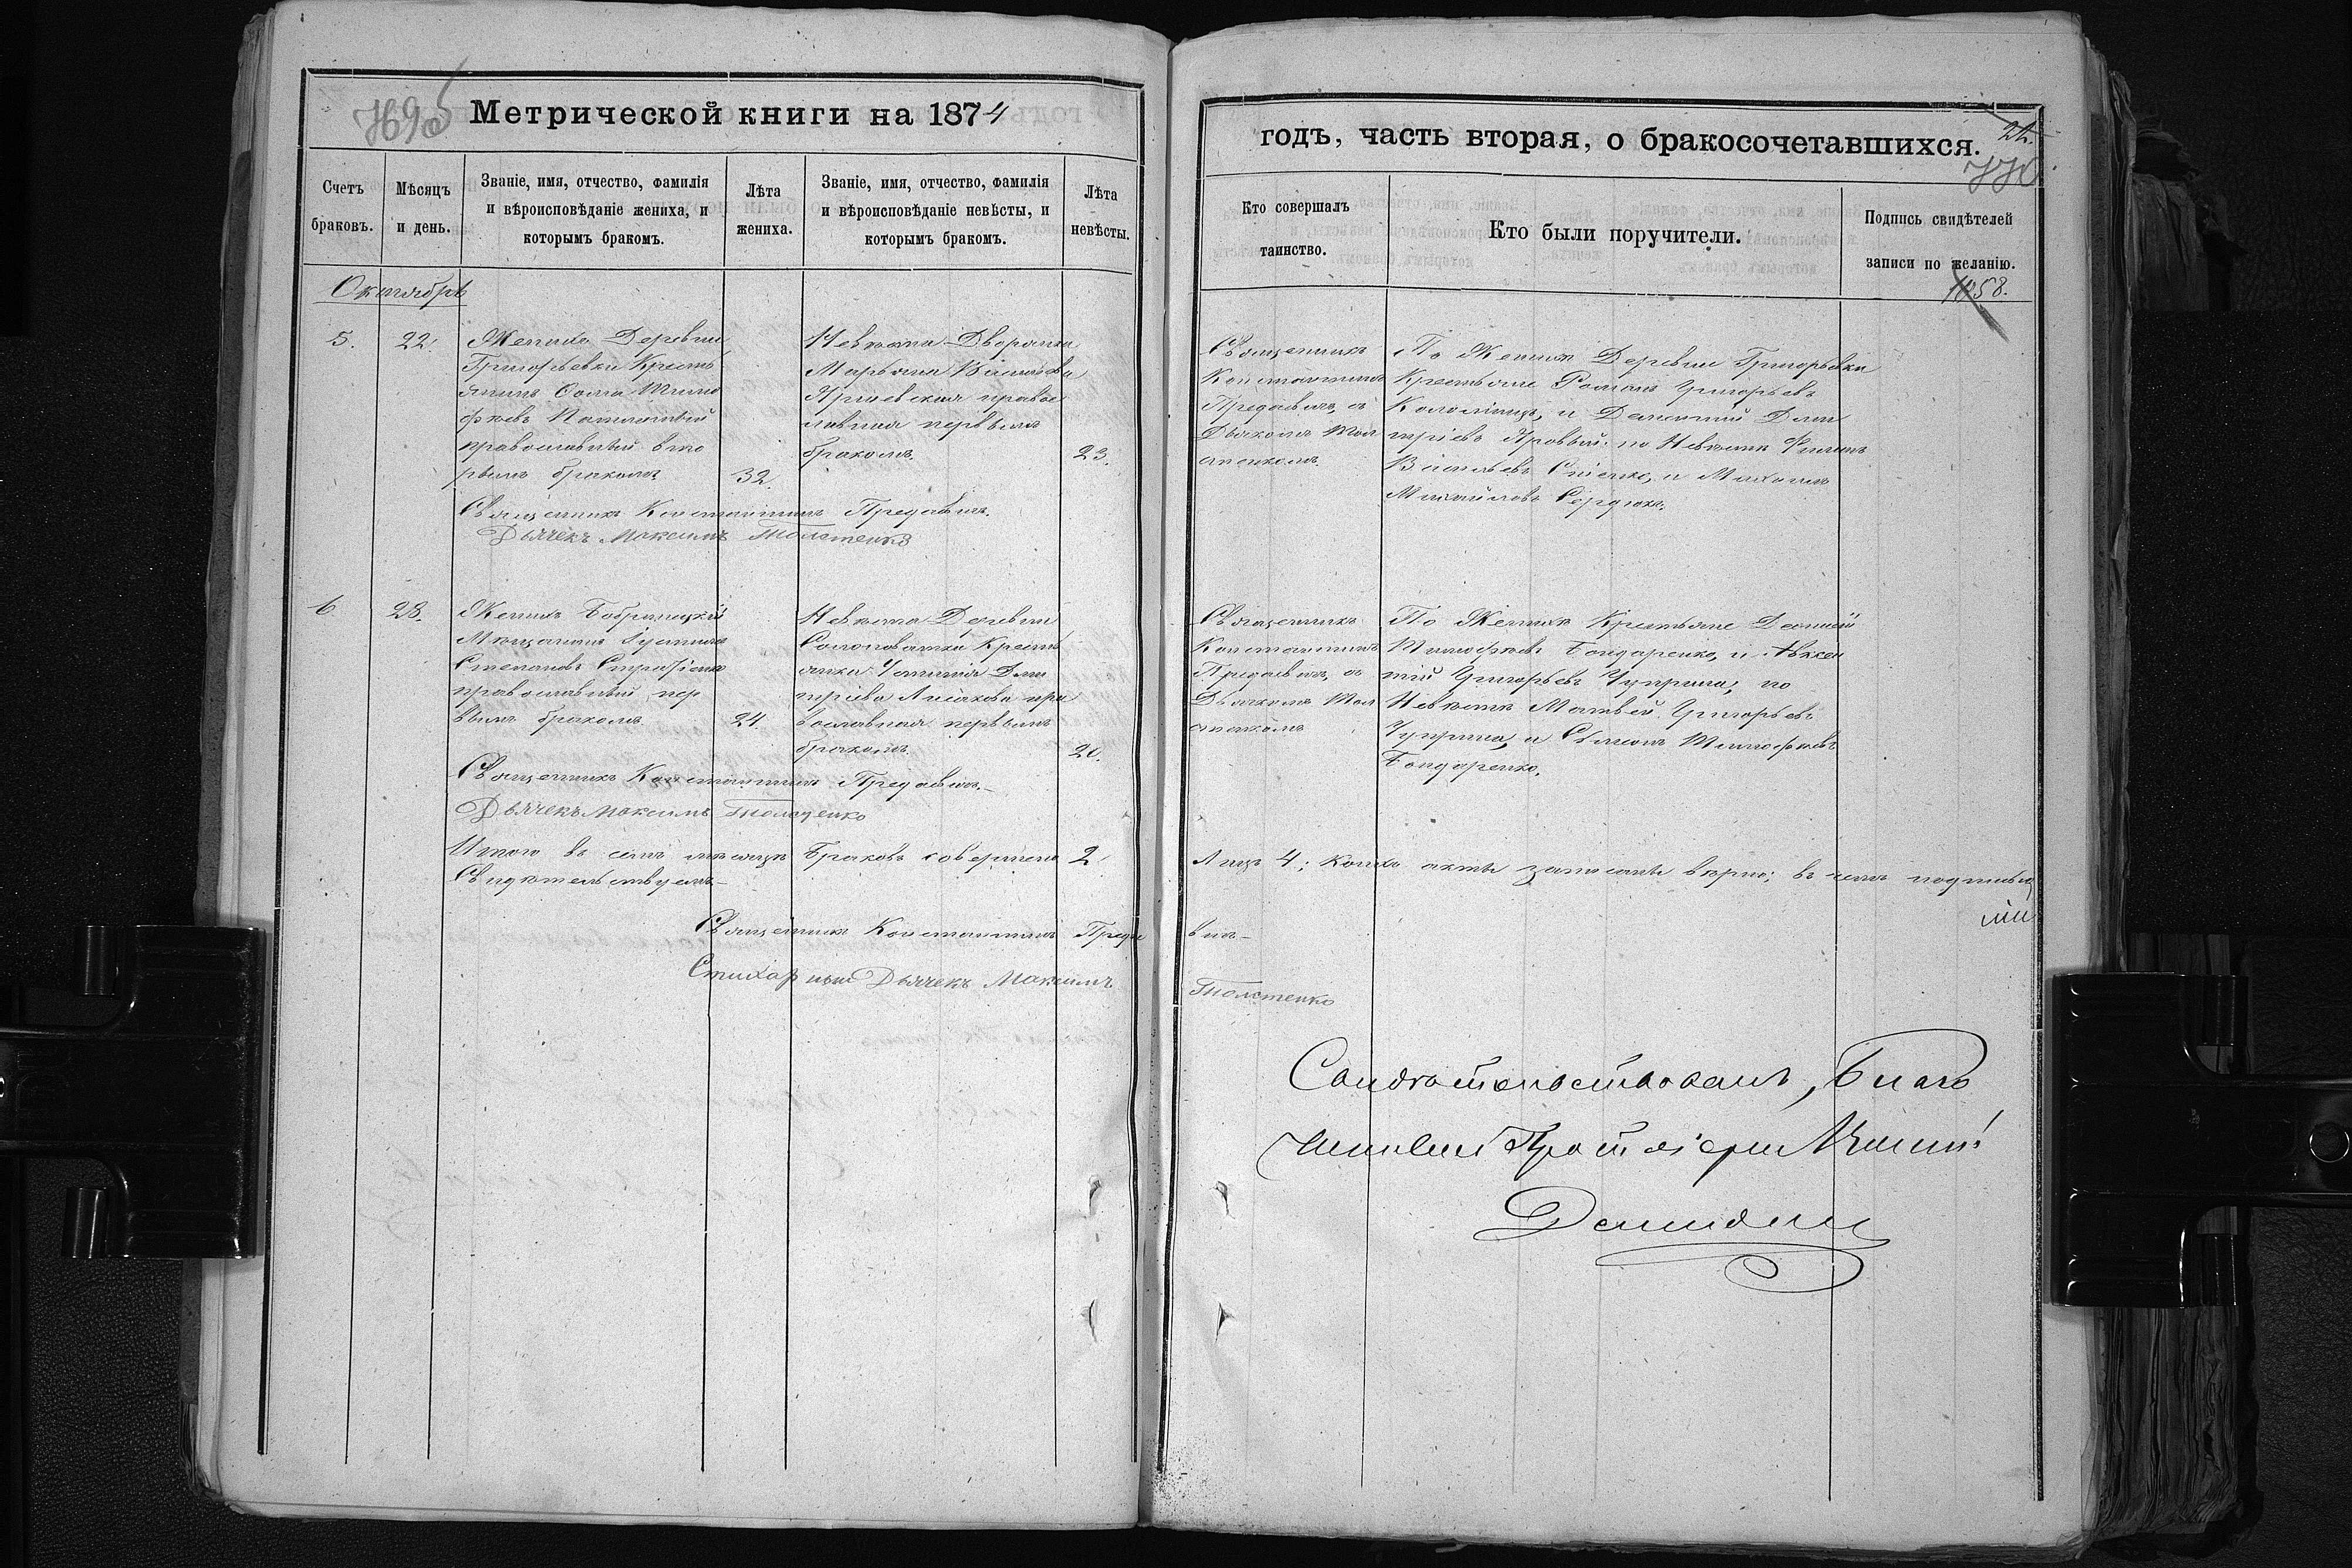 Метрической книги на 1874
годъ, часть вторая, о бракосочетавшихся.
Счетъ браковъ.
Мѣсяцъ и день.
Званіе, имя, отчество, фамилія
и вѣроисповѣданіе жениха, и
которымъ бракомъ.
Лѣта жениха.
Званіе, имя, отчество, фамилія
и вѣроисповѣданіе невѣсты, и
которымъ бракомъ.
Лѣта невѣсты.
Кто совершалъ
таинство.
Кто были поручители.
Подпись свидѣтелей
записи по желанію.
1058.
Октябрь
5.
22.
Женихъ Деревни
Григорьевки Кресть
янинъ Ѳома Тимо
феевъ
православный вто
рымъ бракомъ
32.
Невѣста Дворянка
Марьяна Васильева
православная первымъ
бракомъ.
23.
Священникъ
Константинъ
Предаевичъ, съ
Дьячкомъ Тол
стенкомъ.
По Женихѣ Деревни Григорьевки
Крестьяне Романъ Григорьевъ
Коломіецъ, и Дементій Дми
тріевъ Яровый; по Невѣстѣ Филипъ
Васильевъ и Михаилъ
Михайловъ Сердюкъ.
Священникъ Константинъ Предаевичъ.
Дьячекъ Максимъ Толстенко
6
28.
Женихъ Бобринецкій
Мѣщанинъ Іустинъ
Степановъ
православный, пер
вымъ бракомъ
24.
Невѣста Деревни
Солоноватки Кресть
янка Дми
тріева Лисакова пра
вославная первымъ
бракомъ.
20.
Священникъ
Константинъ
Предаевичъ, съ
Дьячкомъ Тол
стенкомъ
По Женихѣ Крестьяне
Тимофѣевъ Бондаренко, и Авксен
тій Григорьевъ Чуприна; по
Невѣстѣ Матвей Григорьевъ
Чуприна, и Симеонъ Тимофѣевъ
Бондаренко.
Священникъ Константинъ Предаевичъ.
Дьячекъ Максимъ Толстенко
Итого въ семъ мѣсяцѣ браковъ совершено 2
Лицъ 4; коихъ акты записаны вѣрно; въ чемъ подписью
Свидѣтельствуемъ
Священникъ Константинъ Предае
вичъ
Стихарный Дьячекъ Максимъ
Толстенко
Свидѣтельствовалъ, Благо
чинный Протоіерей